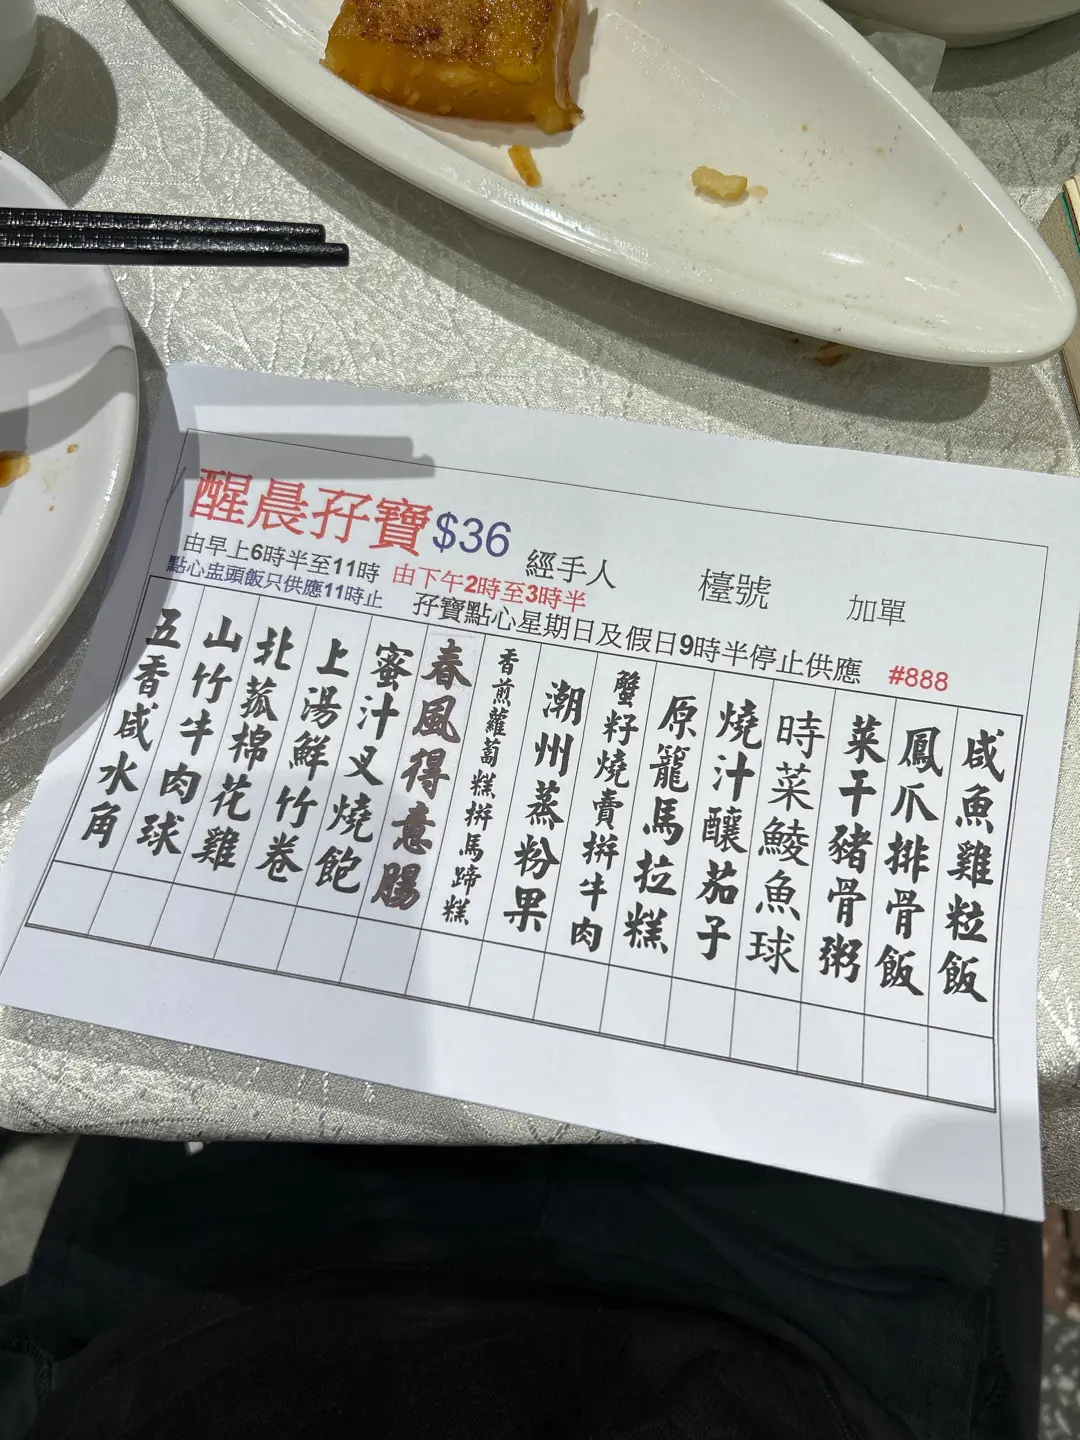 醒晨孖寶$36
經手人
檯號
加單
由早上6時半至11時 由下午2時至3時半
點心盅頭飯只供應11時止
孖寶點心星期日及假日9時半停止供應
#888
咸魚雞粒飯
鳳爪排骨飯
菜干豬骨粥
時菜鯪魚球
燒汁釀茄子
原籠馬拉糕
蟹籽燒賣拼牛肉
潮州蒸粉果
香煎蘿蔔糕拼馬蹄糕
春風得意腸
蜜汁叉燒飽
上湯鮮竹卷
北菰棉花雞
山竹牛肉球
五香咸水角